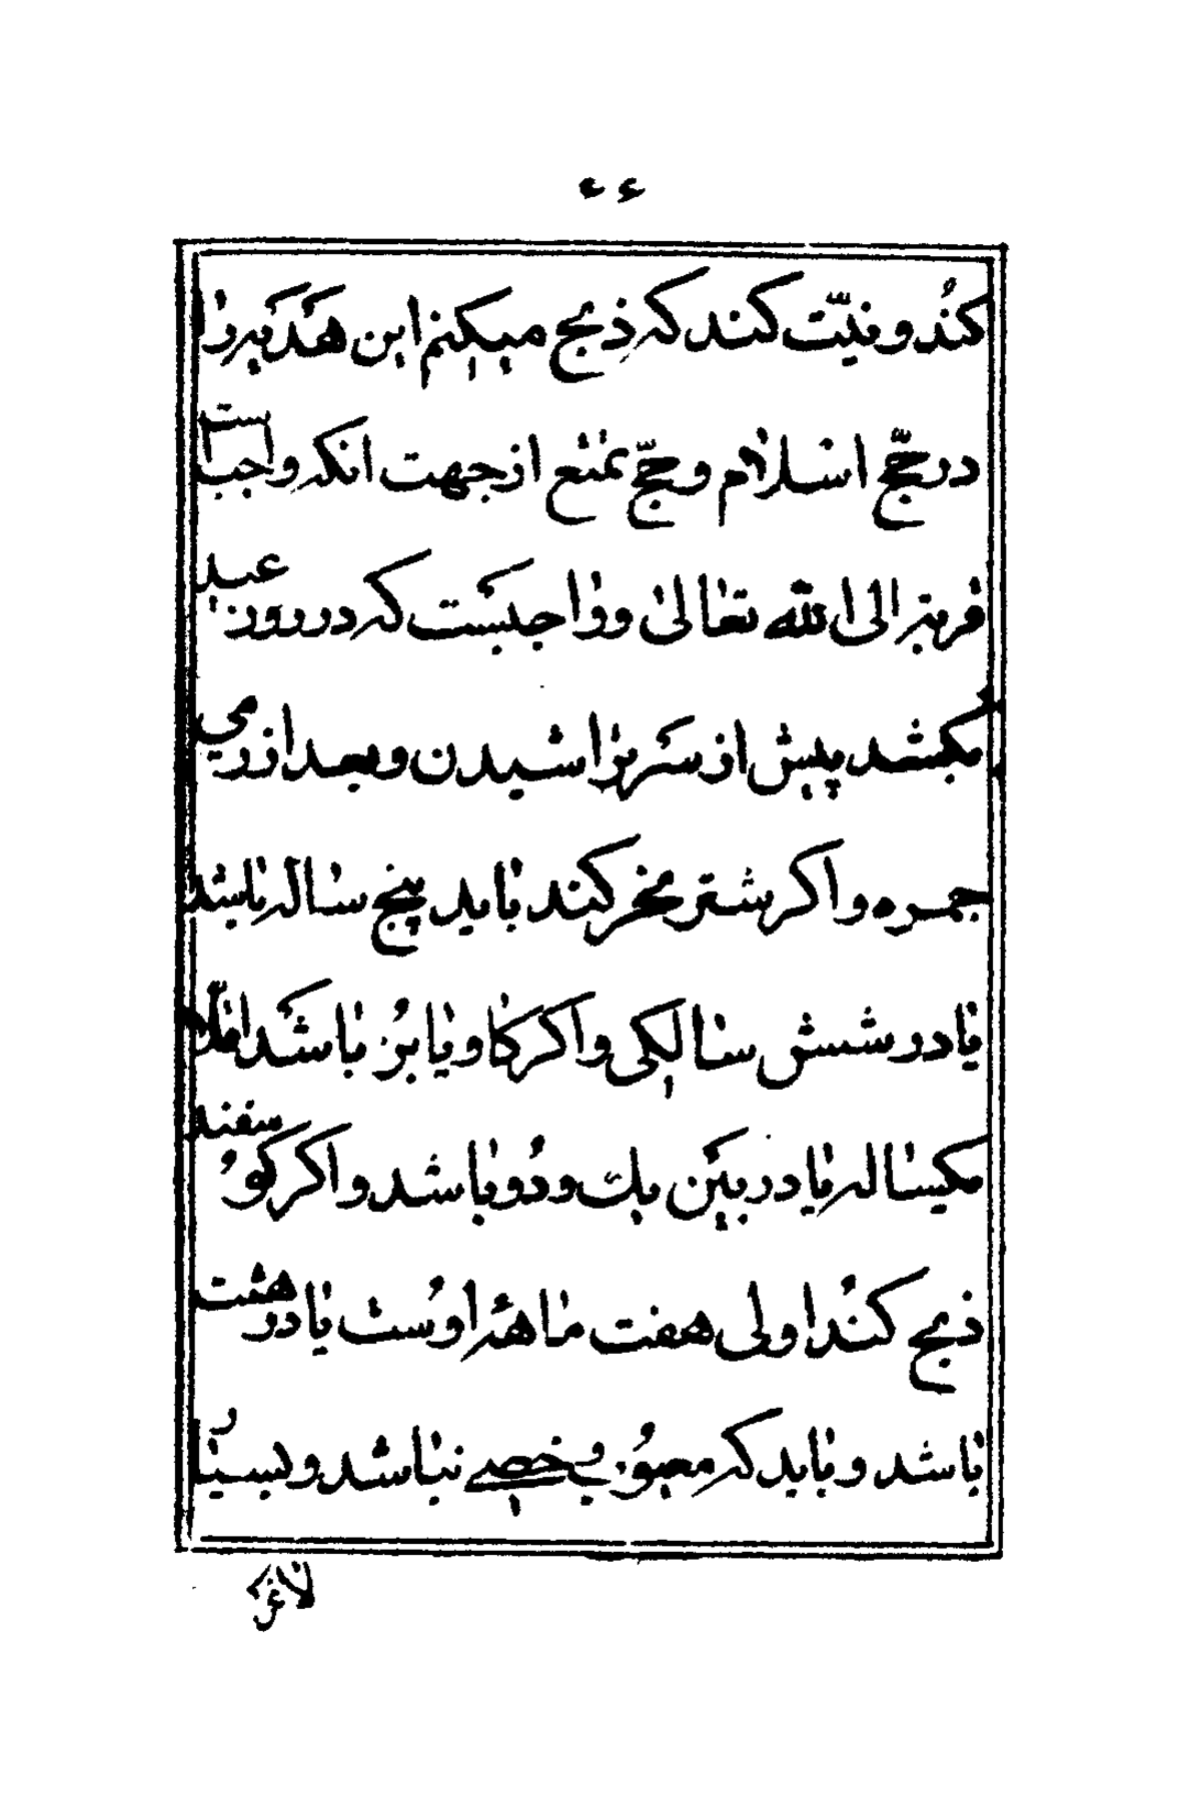 ٤٤
کند و نیّت کند که ذبح میکنم این هدیه را
در حجّ اسلام و حجّ تمتع از جهت انکه واجب است
قربة الی الله تعالی و واجبست که در روز عید
بکشد پیش از سر تراشیدن و بعد از رمی
جمره و اکر شتر نحر کند باید پنج ساله باشد
یا در شش سالکی و اکر کاو یا بز باشد اقلا
یکساله یا در بین یك و دو باشد و اکر کوسفند
ذبح کند اولی هفت ماهه اوست یا در هشت
باشد و باید که معیوب و خصی نباشد و بسیار
لاغر